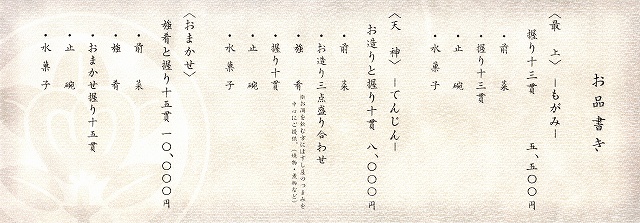 お品書き
〈最上〉 ―もがみ―
握り十三貫 五、五〇〇円
・前菜
・握り十三貫
・止碗
・水菓子
〈天神〉 ―てんじん―
お造りと握り十貫 八、〇〇〇円
・前菜
・お造り三点盛り合わせ
・強肴
※お酒を飲む方にはすし屋のつまみを
中心にご提供。(焼物・煮物など)
・握り十貫
・止碗
・水菓子
〈おまかせ〉
強肴と握り十五貫 一〇、〇〇〇円
・前菜
・強肴
・おまかせ握り十五貫
・止碗
・水菓子